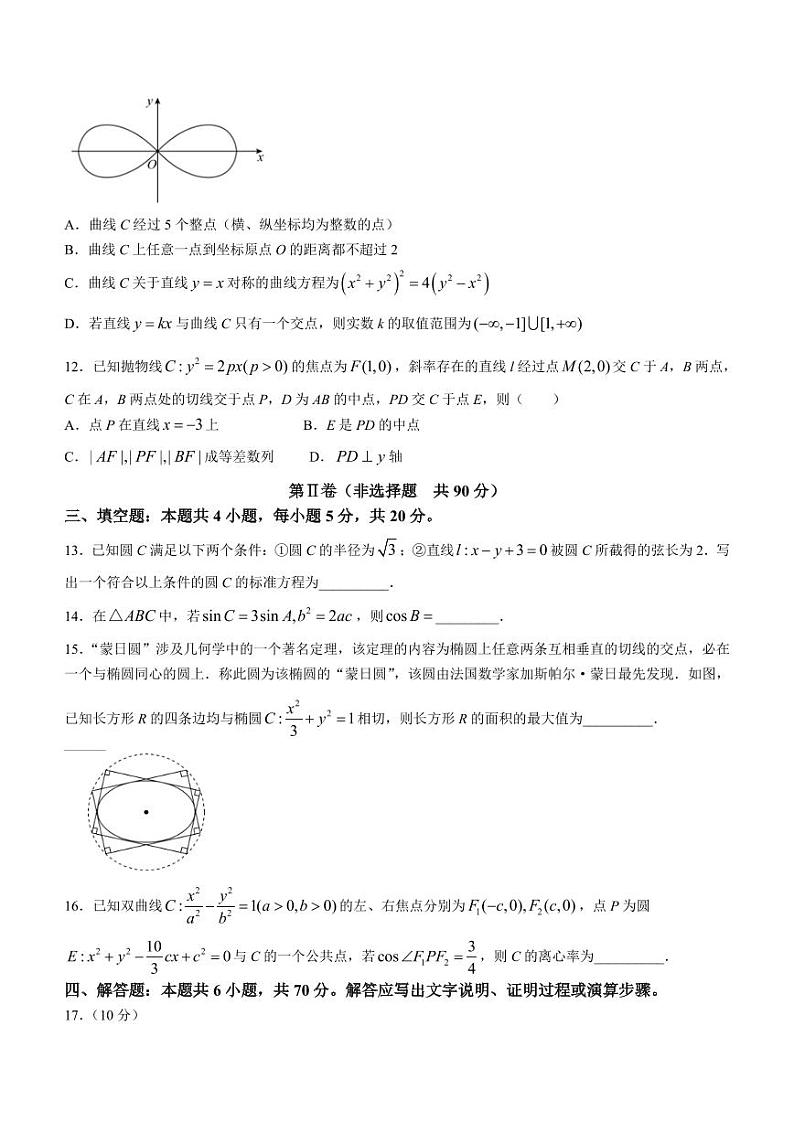 y
O
x
A．曲线 C 经过 5 个整点（横、纵坐标均为整数的点）
B．曲线 C 上任意一点到坐标原点 O 的距离都不超过 2
C．曲线 C 关于直线 y = x 对称的曲线方程为 (x² + y²)² = 4(y² − x²)
D．若直线 y = kx 与曲线 C 只有一个交点，则实数 k 的取值范围为 (−∞,−1]∪[1,+∞)
12．已知抛物线 C : y² = 2px(p > 0) 的焦点为 F(1,0)，斜率存在的直线 l 经过点 M(2,0) 交 C 于 A，B 两点，
C 在 A，B 两点处的切线交于点 P，D 为 AB 的中点，PD 交 C 于点 E，则（　　）
A．点 P 在直线 x = −3 上　　B．E 是 PD 的中点
C．| AF |,| PF |,| BF | 成等差数列　　D．PD ⊥ y 轴
第Ⅱ卷（非选择题　共 90 分）
三、填空题：本题共 4 小题，每小题 5 分，共 20 分。
13．已知圆 C 满足以下两个条件：①圆 C 的半径为 √3；②直线 l : x − y + 3 = 0 被圆 C 所截得的弦长为 2．写
出一个符合以上条件的圆 C 的标准方程为__________．
14．在 △ABC 中，若 sin C = 3sin A, b² = 2ac，则 cos B = _________．
15．“蒙日圆”涉及几何学中的一个著名定理，该定理的内容为椭圆上任意两条互相垂直的切线的交点，必在
一个与椭圆同心的圆上．称此圆为该椭圆的“蒙日圆”，该圆由法国数学家加斯帕尔·蒙日最先发现．如图，
已知长方形 R 的四条边均与椭圆 C : x²/3 + y² = 1 相切，则长方形 R 的面积的最大值为__________．
16．已知双曲线 C : x²/a² − y²/b² = 1(a > 0, b > 0) 的左、右焦点分别为 F₁(−c,0), F₂(c,0)，点 P 为圆
E : x² + y² − 10/3 cx + c² = 0 与 C 的一个公共点，若 cos∠F₁PF₂ = 3/4，则 C 的离心率为__________．
四、解答题：本题共 6 小题，共 70 分。解答应写出文字说明、证明过程或演算步骤。
17．（10 分）